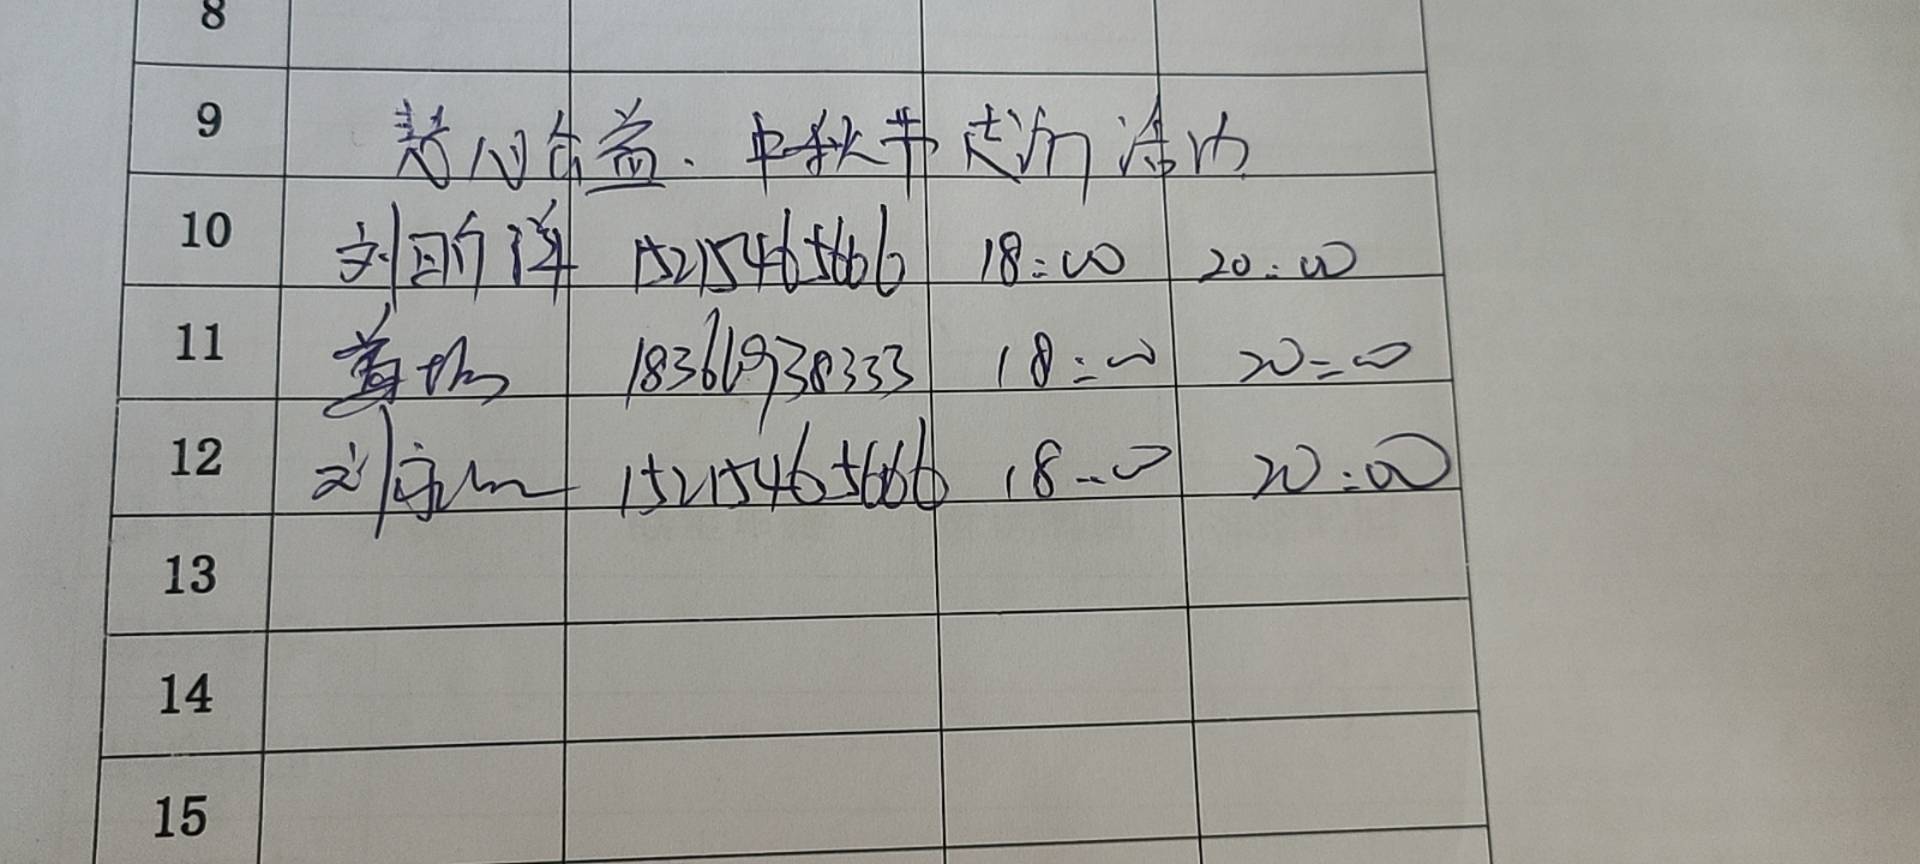 8
9 慧心公益. 中秋节走访活动
10 刘 15215465666 18:00 20:00
11 18366938333 18:00 20:00
12 刘 15215465666 18:00 20:00
13
14
15